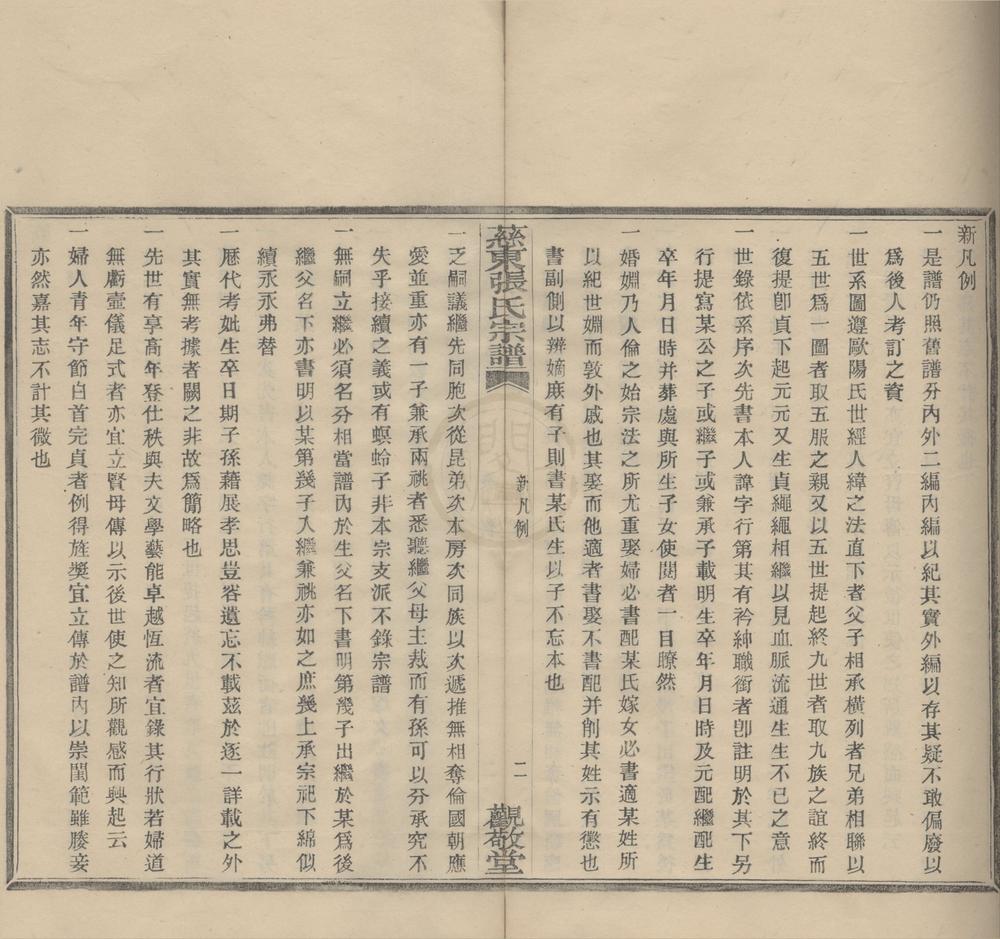 新凡例
一是譜仍照舊譜分內外二編內編以紀其實外編以存其疑不敢偏廢以
爲後人考訂之資
一世系圖遵歐陽氏世經人緯之法直下者父子相承橫列者兄弟相聯以
五世爲一圖者取五服之親又以五世提起終九世者取九族之誼終而
復提卽貞下起元元又生貞繩繩相繼以見血脈流通生生不已之意
一世錄依系序次先書本人諱字行第其有衿紳職銜者卽註明於其下另
行提寫某公之子或繼子或兼承子載明生卒年月日時及元配繼配生
卒年月日時并葬處與所生子女使閱者一目瞭然
一婚姻乃人倫之始宗法之所尤重娶婦必書配某氏嫁女必書適某姓所
以紀世姻而敦外戚也其娶而他適者書娶不書配并削其姓示有懲也
書副側以辨嫡庶有子則書某氏生以子不忘本也
慈東張氏宗譜
新凡例
二
觀敬堂
一乏嗣議繼先同胞次從昆弟次本房次同族以次遞推無相奪倫國朝應
愛並重亦有一子兼承兩祧者悉聽繼父母主裁而有孫可以分承究不
失乎接續之義或有螟蛉子非本宗支派不錄宗譜
一無嗣立繼必須名分相當譜內於生父名下書明第幾子出繼於某爲後
繼父名下亦書明以某第幾子入繼兼祧亦如之庶幾上承宗祀下綿似
續永永弗替
一歷代考妣生卒日期子孫藉展孝思豈容遺忘不載茲於逐一詳載之外
其實無考據者闕之非故爲簡略也
一先世有享高年登仕秩與夫文學藝能卓越恆流者宜錄其行狀若婦道
無虧壼儀足式者亦宜立賢母傳以示後世使之知所觀感而興起云
一婦人青年守節白首完貞者例得旌獎宜立傳於譜內以崇閨範雖媵妾
亦然嘉其志不計其微也